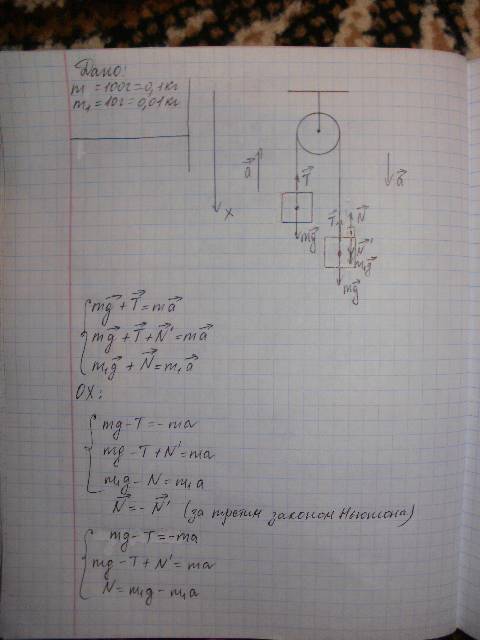 Дано:
m = 100г = 0,1кг
m₁ = 10г = 0,01кг
a⃗
T⃗
mg⃗
X
a⃗
T⃗
N⃗
N⃗'
m₁g⃗
mg⃗
mg⃗ + T⃗ = ma⃗
mg⃗ + T⃗ + N⃗' = ma⃗
m₁g⃗ + N⃗ = m₁a⃗
OX:
mg - T = - ma
mg - T + N' = ma
m₁g - N = m₁a
N⃗ = - N⃗' (за третім законом Ньютона)
mg - T = -ma
mg - T + N' = ma
N = m₁g - m₁a